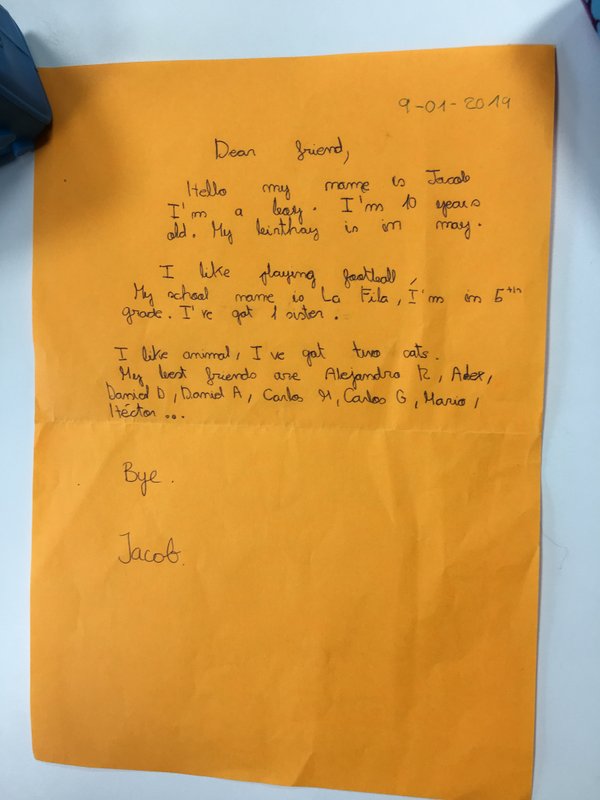 9-01-2019
Dear friend,
Hello my name is Jacob
I'm a boy. I'm 10 years
old. My birthay is in may.
I like playing football,
My school name is La Fila, I'm in 5th
grade. I've got 1 sister.
I like animal, I've got two cats.
My best friends are Alejandro R, Alex,
Daniel D, Daniel A, Carlos M, Carlos G, Mario,
Héctor ...
Bye.
Jacob.